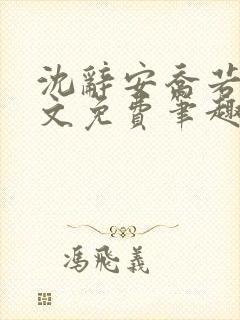 沈辭安喬若
文免費筆趣
馮飛義